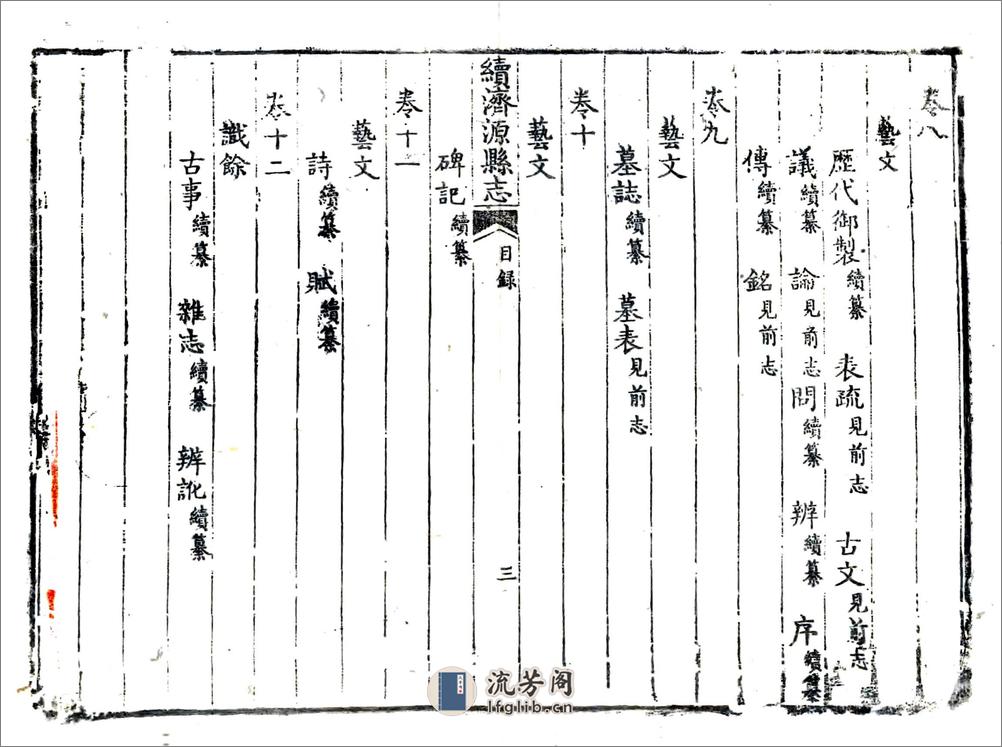 卷八
藝文
歷代御製續纂 表疏見前志 古文見前志
議續纂 論見前志 問續纂 辨續纂 序續纂
傳續纂 銘見前志
卷九
藝文
墓誌續纂 墓表見前志
卷十
藝文
續濟源縣志 目録 三
碑記續纂
卷十一
藝文
詩續纂 賦續纂
卷十二
識餘
古事續纂 雜志續纂 辨訛續纂
流芳阁
lfglib.cn